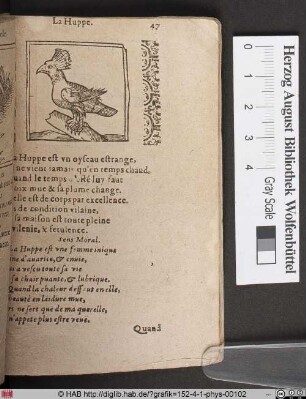 La Huppe.
47
a Huppe est vn oyseau estrange,
ue vient iamais qu'en temps chaud,
uand le temps d'esté luy faut
oix mue & sa plume change.
elle est de corps par excellence,
de condition vilaine,
sa maison est toute pleine
vilenie, & feculence.
Sens Moral.
a Huppe est vne femme insigne
ine d'auarice, & enuie,
ui a vescu toute sa vie
sa chair puante, & lubrique.
Quand la chaleur deffaut en elle,
beauté en laidure mue,
ne sert que de ma querelle,
n'appete plus estre veuë.
Quand
Herzog August Bibliothek Wolfenbüttel
Gray Scale
© HAB http://diglib.hab.de/?grafik=152-4-1-phys-00102